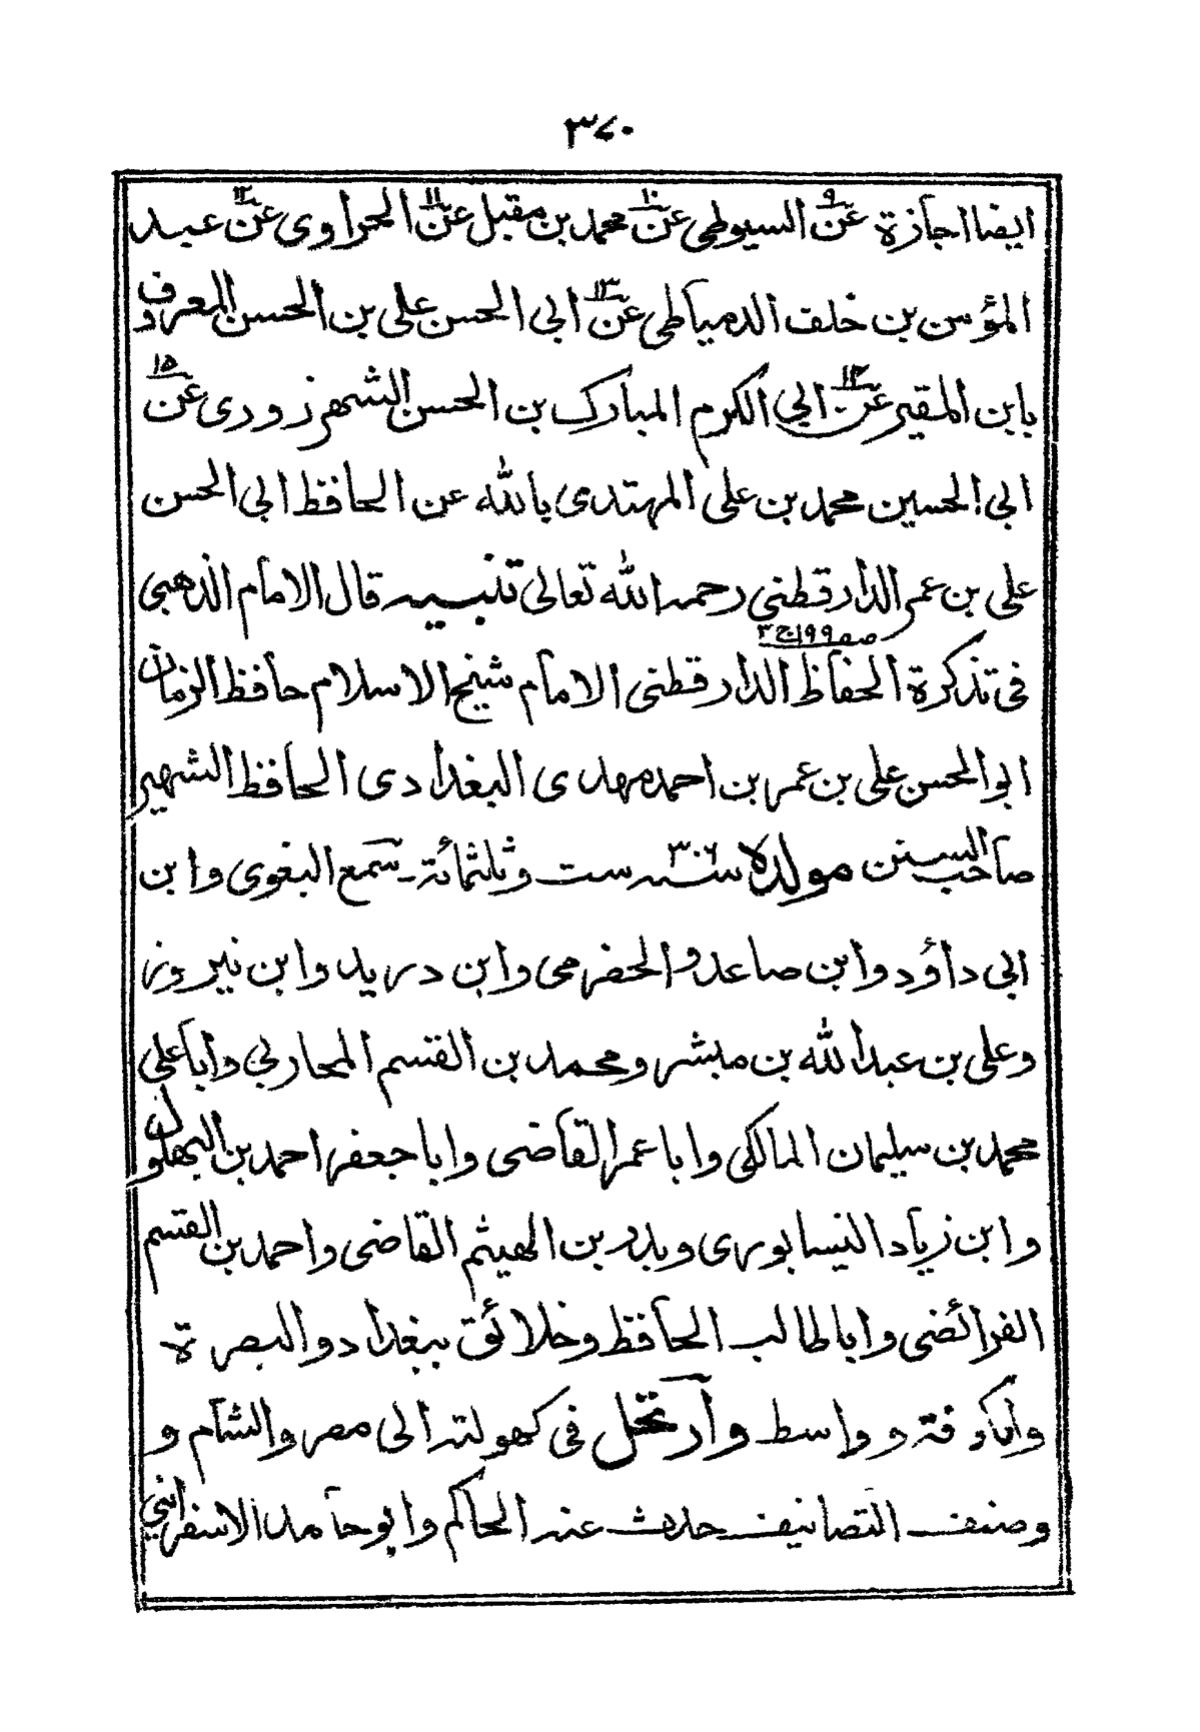 ٣٧٠
ايضا اجازة عن٩ السيوطى عن١٠ محمد بن مقبل عن١١ الحراوى عن١٢ عبد
المؤمن بن خلف الدمياطى عن١٣ ابى الحسن على بن الحسن المعروف
بابن المقير عن١٤ ابي الكرم المبارك بن الحسن الشهرزورى عن١٥
ابى الحسين محمد بن على المهتدى بالله عن الحافظ ابى الحسن
على بن عمر الدارقطني رحمه الله تعالى تنبيه قال الامام الذهبى
فى تذكرة الحفاظ صـ١٩٩ج٣ الدارقطنى الامام شيخ الاسلام حافظ الزمان
ابو الحسن على بن عمر بن احمد مهدى البغدادى الحافظ الشهير
صاحب السنن مولده سنه ٣٠٦ ست وثلثمائة ـ سمع البغوى وابن
ابى داؤد وابن صاعد والحضرمى وابن دريد وابن نيروز
وعلى بن عبد الله بن مبشر ومحمد بن القسم المحاربي وابا على
محمد بن سليمان المالكى وابا عمر القاضى وابا جعفر احمد بن البهلول
وابن زياد النيسابورى وبدر بن الهيثم القاضى واحمد بن القسم
الفرائضى وابا طالب الحافظ وخلائق ببغداد والبصرة
والكوفة وواسط وارتحل فى كهولته الى مصر والشام و
وصنف التصانيف حدث عنه الحاكم وابو حامد الاسفرائنى